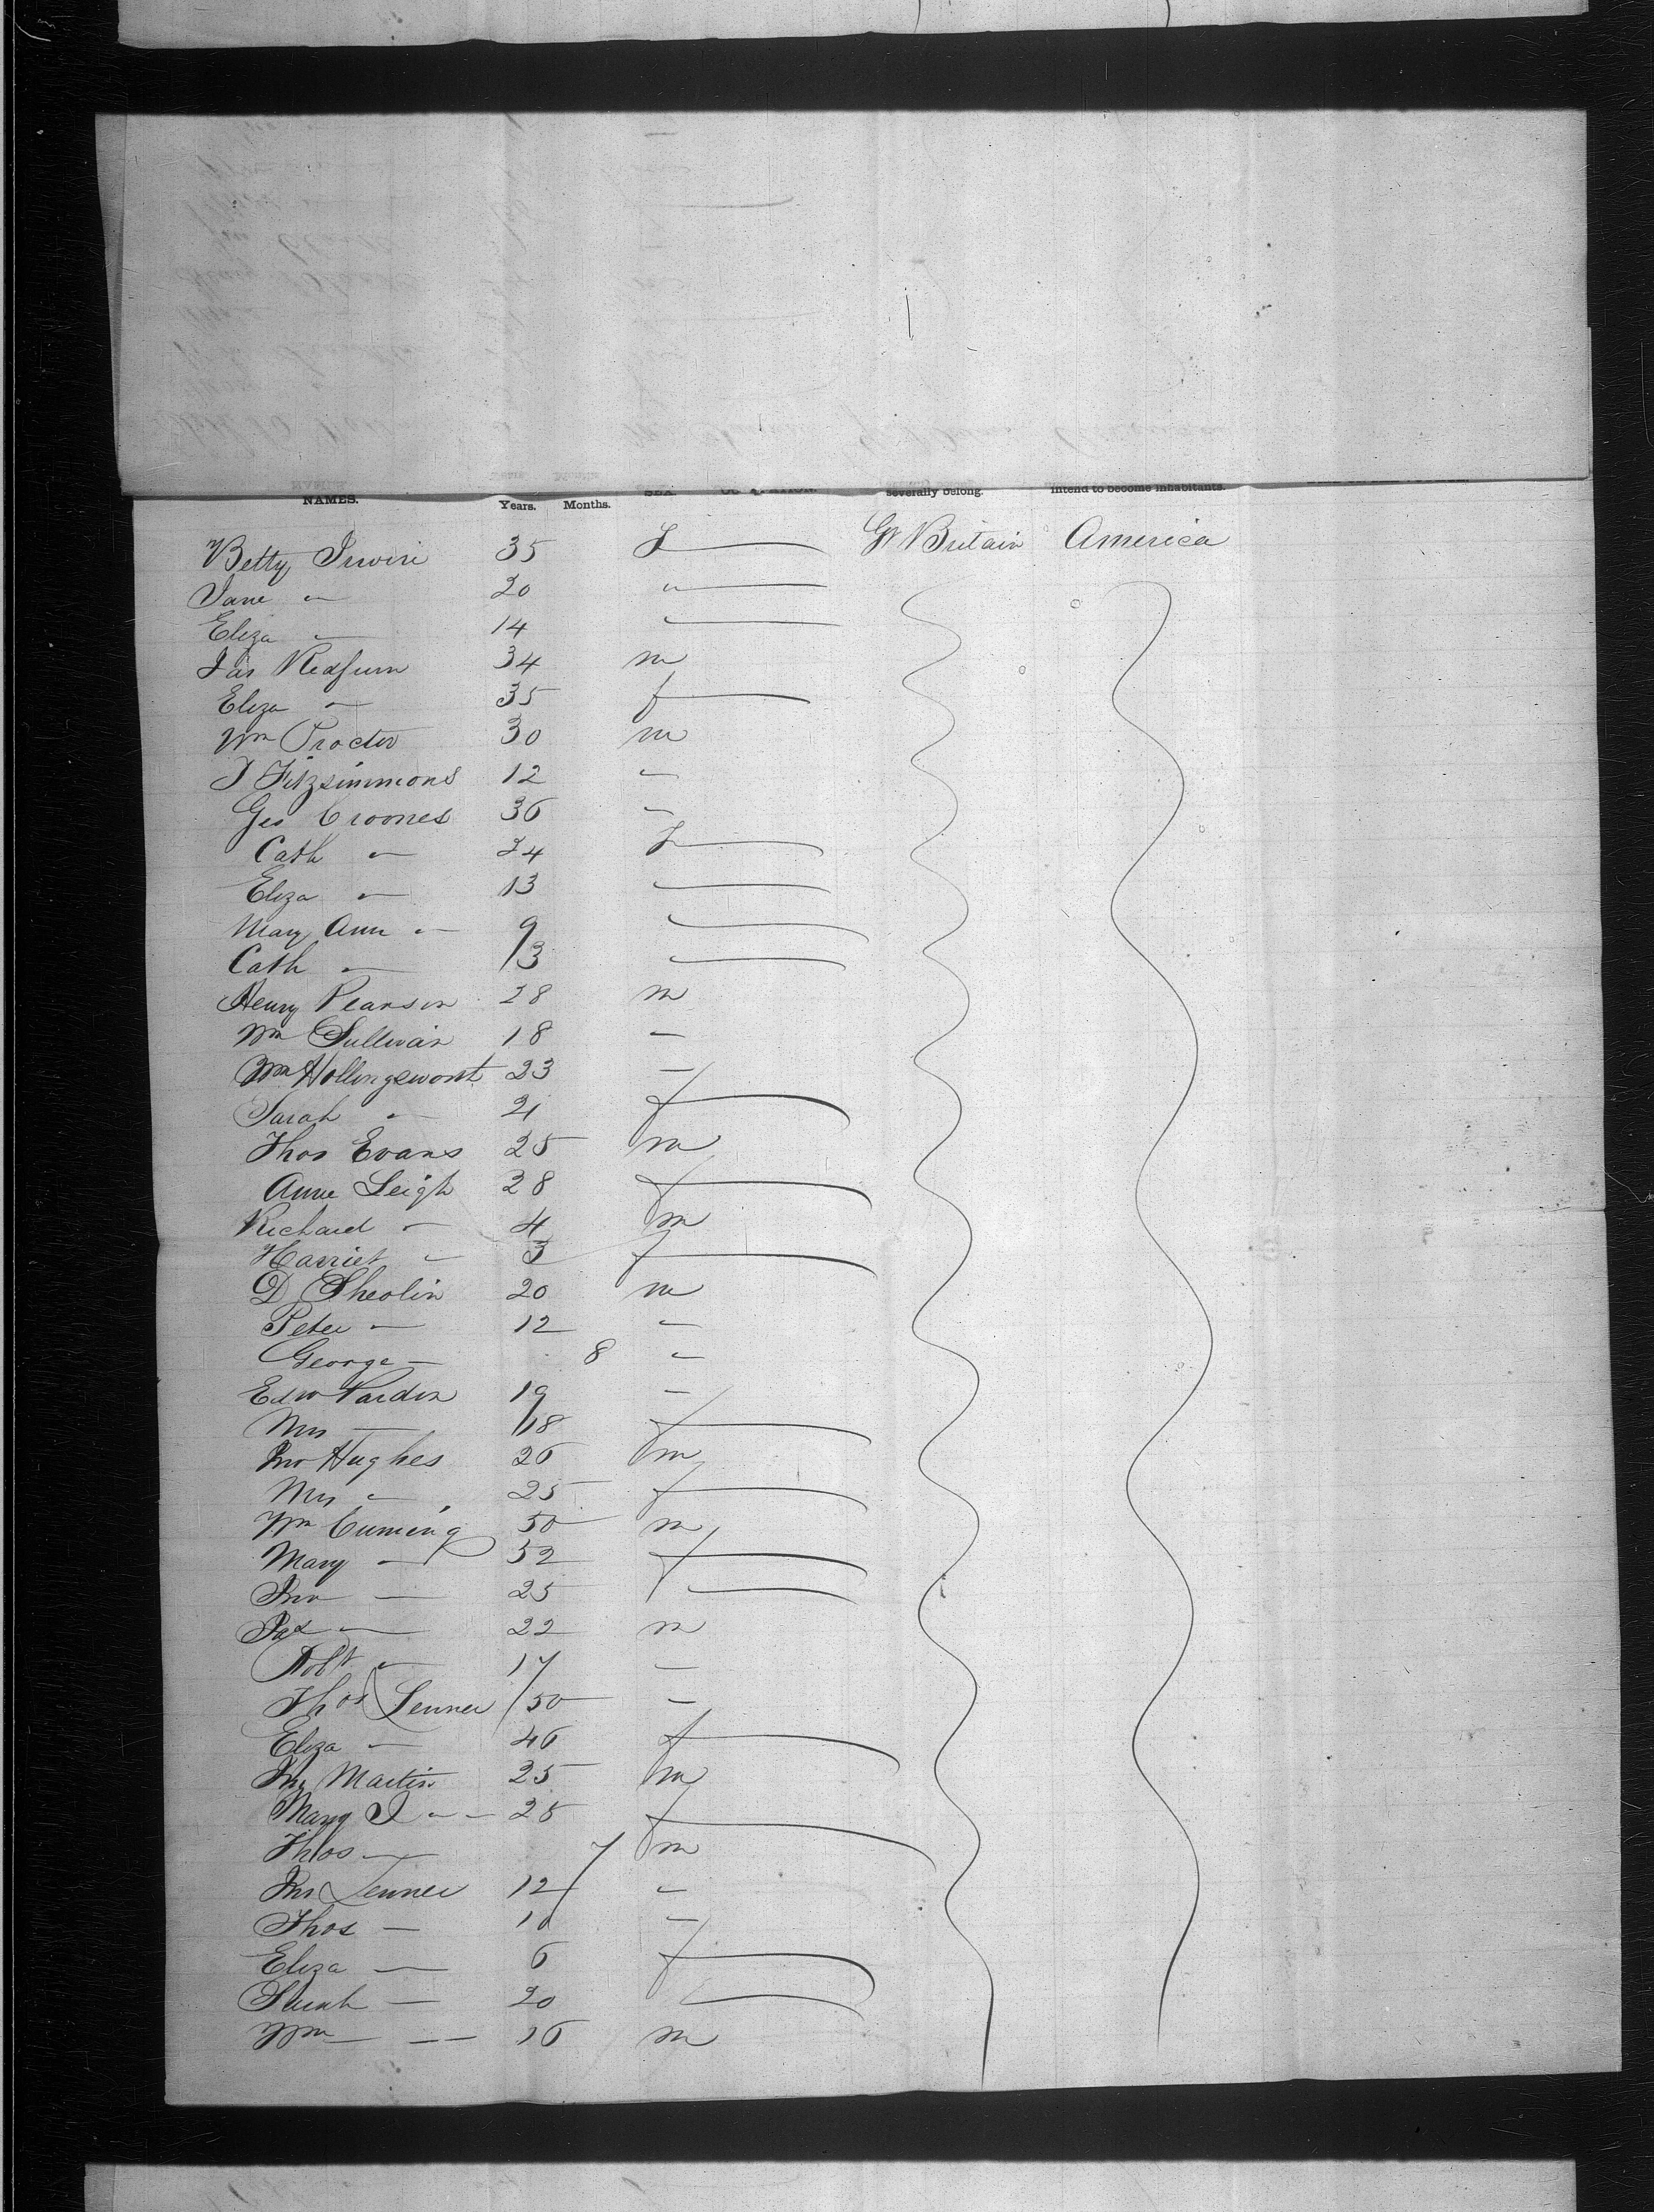 NAMES. Years. Months. SEX. severally belong. intend to become inhabitants.
Betty Irwin 35 f Gt Britain America
Jane " 20 "
Eliza " 14 "
Jas Redfurn 34 m
Eliza " 35 f
Wm Procter 30 m
J Fitzsimmons 12 "
Geo Croones 36 "
Cath " 24 f
Eliza " 13 "
Mary Ann " 9 "
Cath " 3 "
Henry Pearson 28 m
Wm Sullivan 18 "
Wm Hollingsworst 23 "
Sarah " 21 f
Thos Evans 25 m
Anne Leigh 28 f
Richard " 4 m
Harriet " 3 f
D Sheolin 20 m
Peter " 12 "
George " 8 "
Edw Pardon 19 "
Mrs " 18 f
Jno Hughes 26 m
Mrs " 25 f
Wm Cuming 50 m
Mary " 52 f
Jno " 25 "
Jas " 22 m
Robt " 17 "
Thos Lenner 50 "
Eliza " 46 f
Martin 25 m
Mary J " 25 f
Thos " 7 m
Jno Lenner 12 "
Thos " 10 "
Eliza " 6 f
Sarah " 20 "
Wm " 16 m